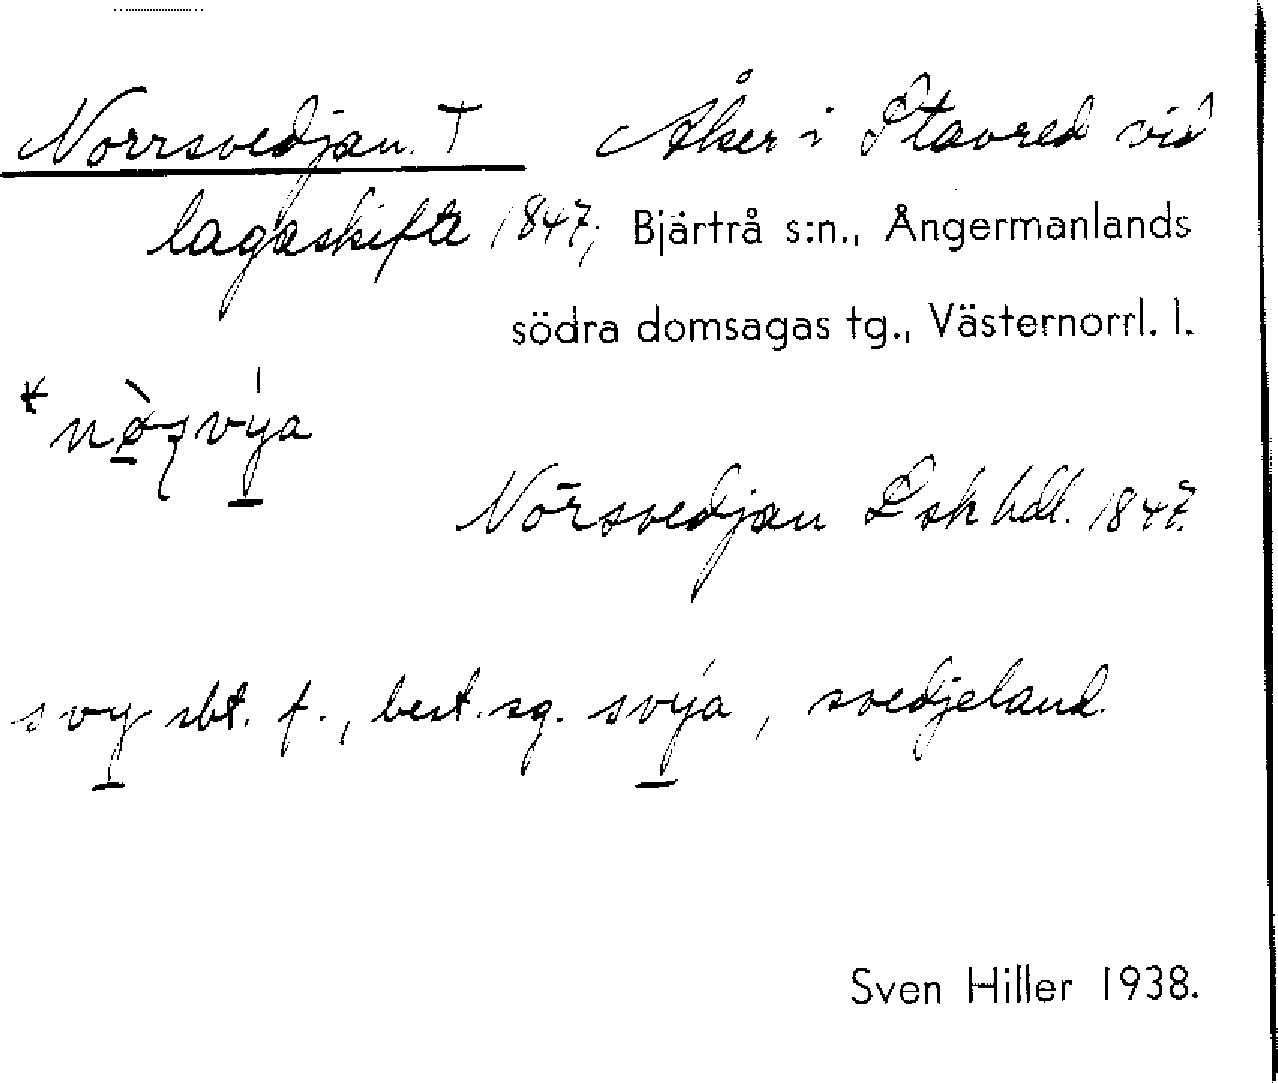 Norrsvedjan. † Åker i Stavred vid
lagaskifte 1847, Bjärtrå s:n., Ångermanlands
södra domsagas tg., Västernorrl. l.
Nörsvedjan Lsk hdl. 1847.
svy sbt. f., best. sg. svýa, svedjeland.
Sven Hiller 1938.